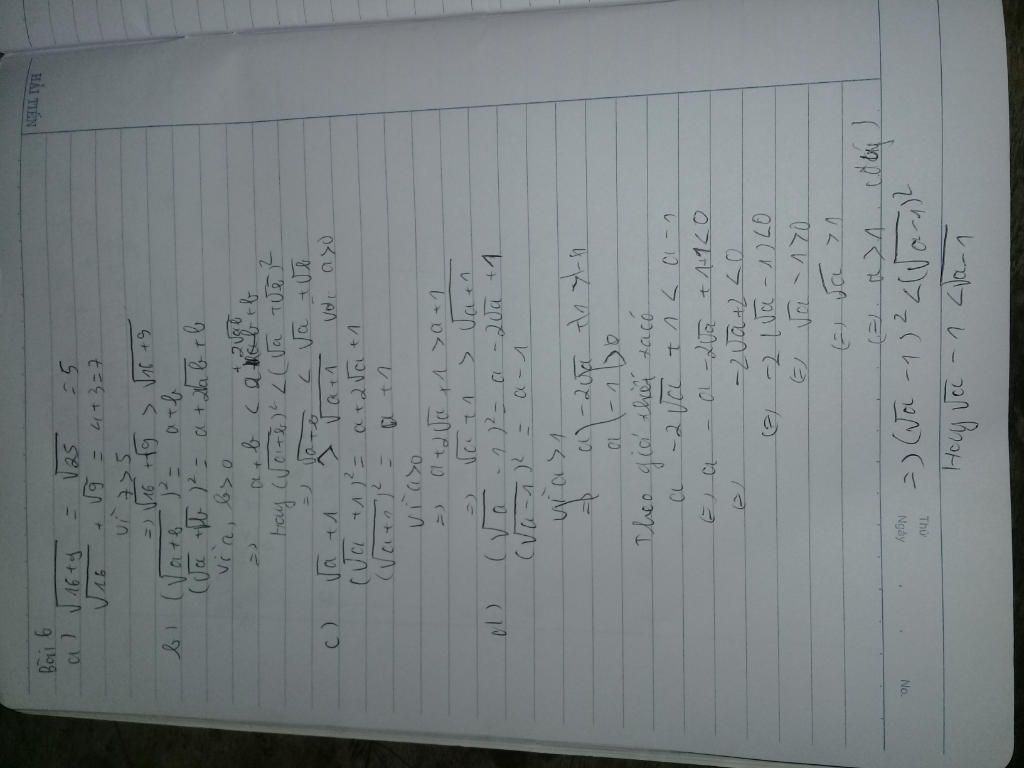 Bài 6
a) √(16+9) = √25 = 5
√16 + √9 = 4+3=7
Vì 7 > 5
=> √16 + √9 > √(16+9)
b) (√(a+b))² = a+b
(√a + √b)² = a + 2√ab + b
Vì a, b > 0
=> a + b < a + 2√ab + b
Hay (√(a+b))² < (√a + √b)²
=> √(a+b) < √a + √b
c) √a + 1 > √(a+1) với a>0
(√a + 1)² = a + 2√a + 1
(√(a+1))² = a + 1
Vì a>0
=> a+2√a +1 > a+1
=> √a + 1 > √(a+1)
d) (√a - 1)² = a - 2√a + 1
(√(a-1))² = a - 1
Vì a>1
=> a - 2√a + 1
a - 1 > 0
Theo giả thiết ta có
a - 2√a + 1 < a - 1
(=) a - a - 2√a + 1+1<0
(=) -2√a+2 <0
(=) -2(√a - 1)<0
(=) √a - 1>0
(=) √a >1
(=) a>1 (đúng)
=> (√a - 1)² < (√(a-1))²
Hay √a - 1 < √(a-1)
No.
Thứ
Ngày